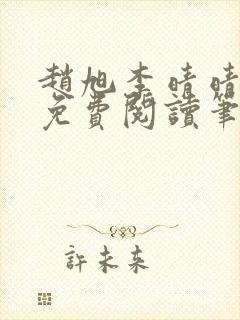 趙旭李晴晴
免費閱讀筆
許未來